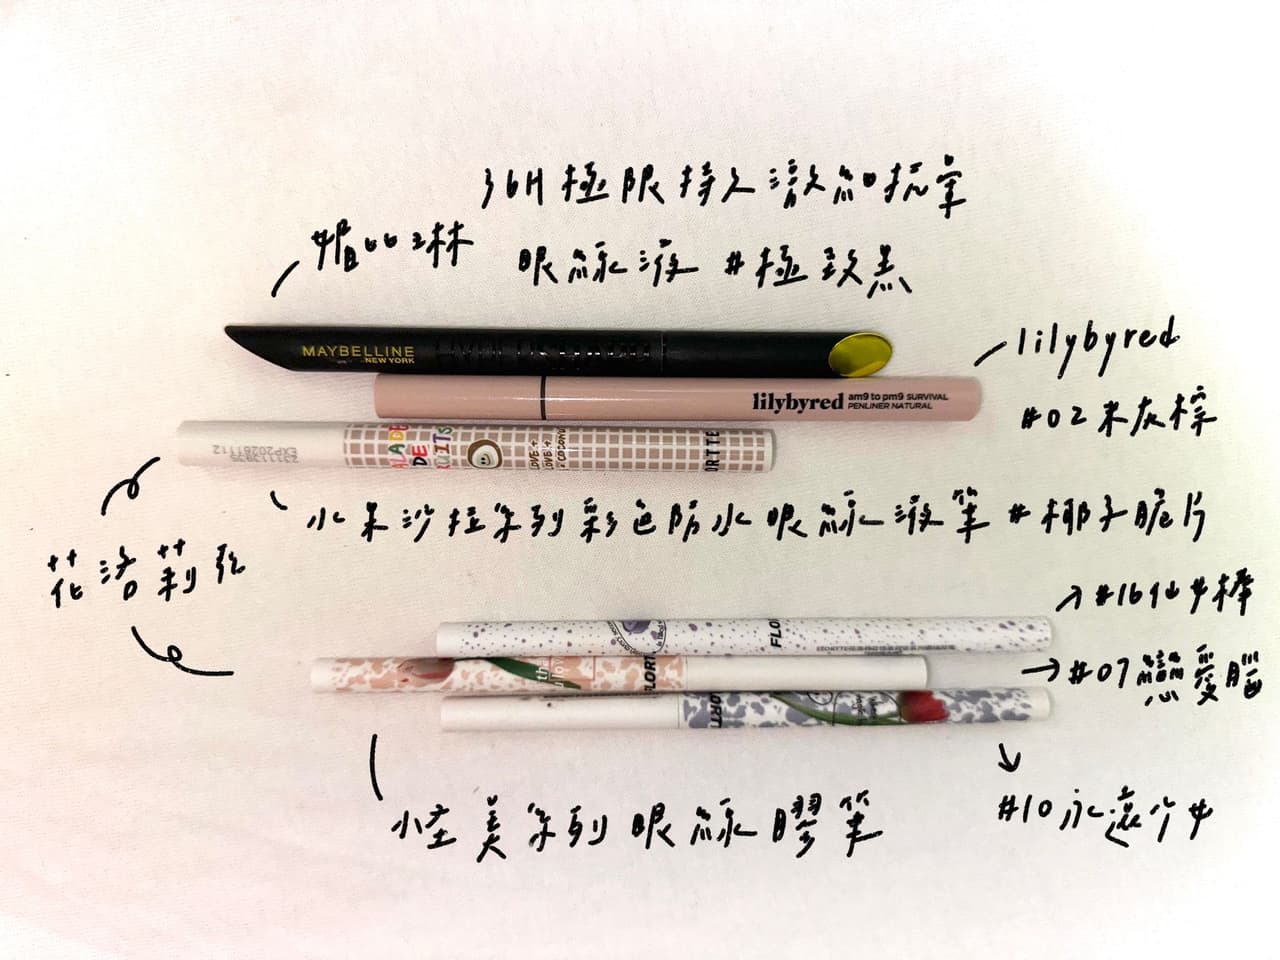 36H極限持久激細抗暈
眼線液 #極致黑
媚比琳
MAYBELLINE
NEW YORK
lilybyred
#02 米灰棕
lilybyred am9 to pm9 SURVIVAL
PENLINER NATURAL
EXP20261112
ALADE
DE
UITS
LOVE
LOVE
COCONU
ORTTE
水果沙拉系列彩色防水眼線液筆 #椰子脆片
花洛莉亞
#16仙女棒
FLO
#07戀愛腦
FLORT
ORT
怪美系列眼線膠筆
#10永遠少女